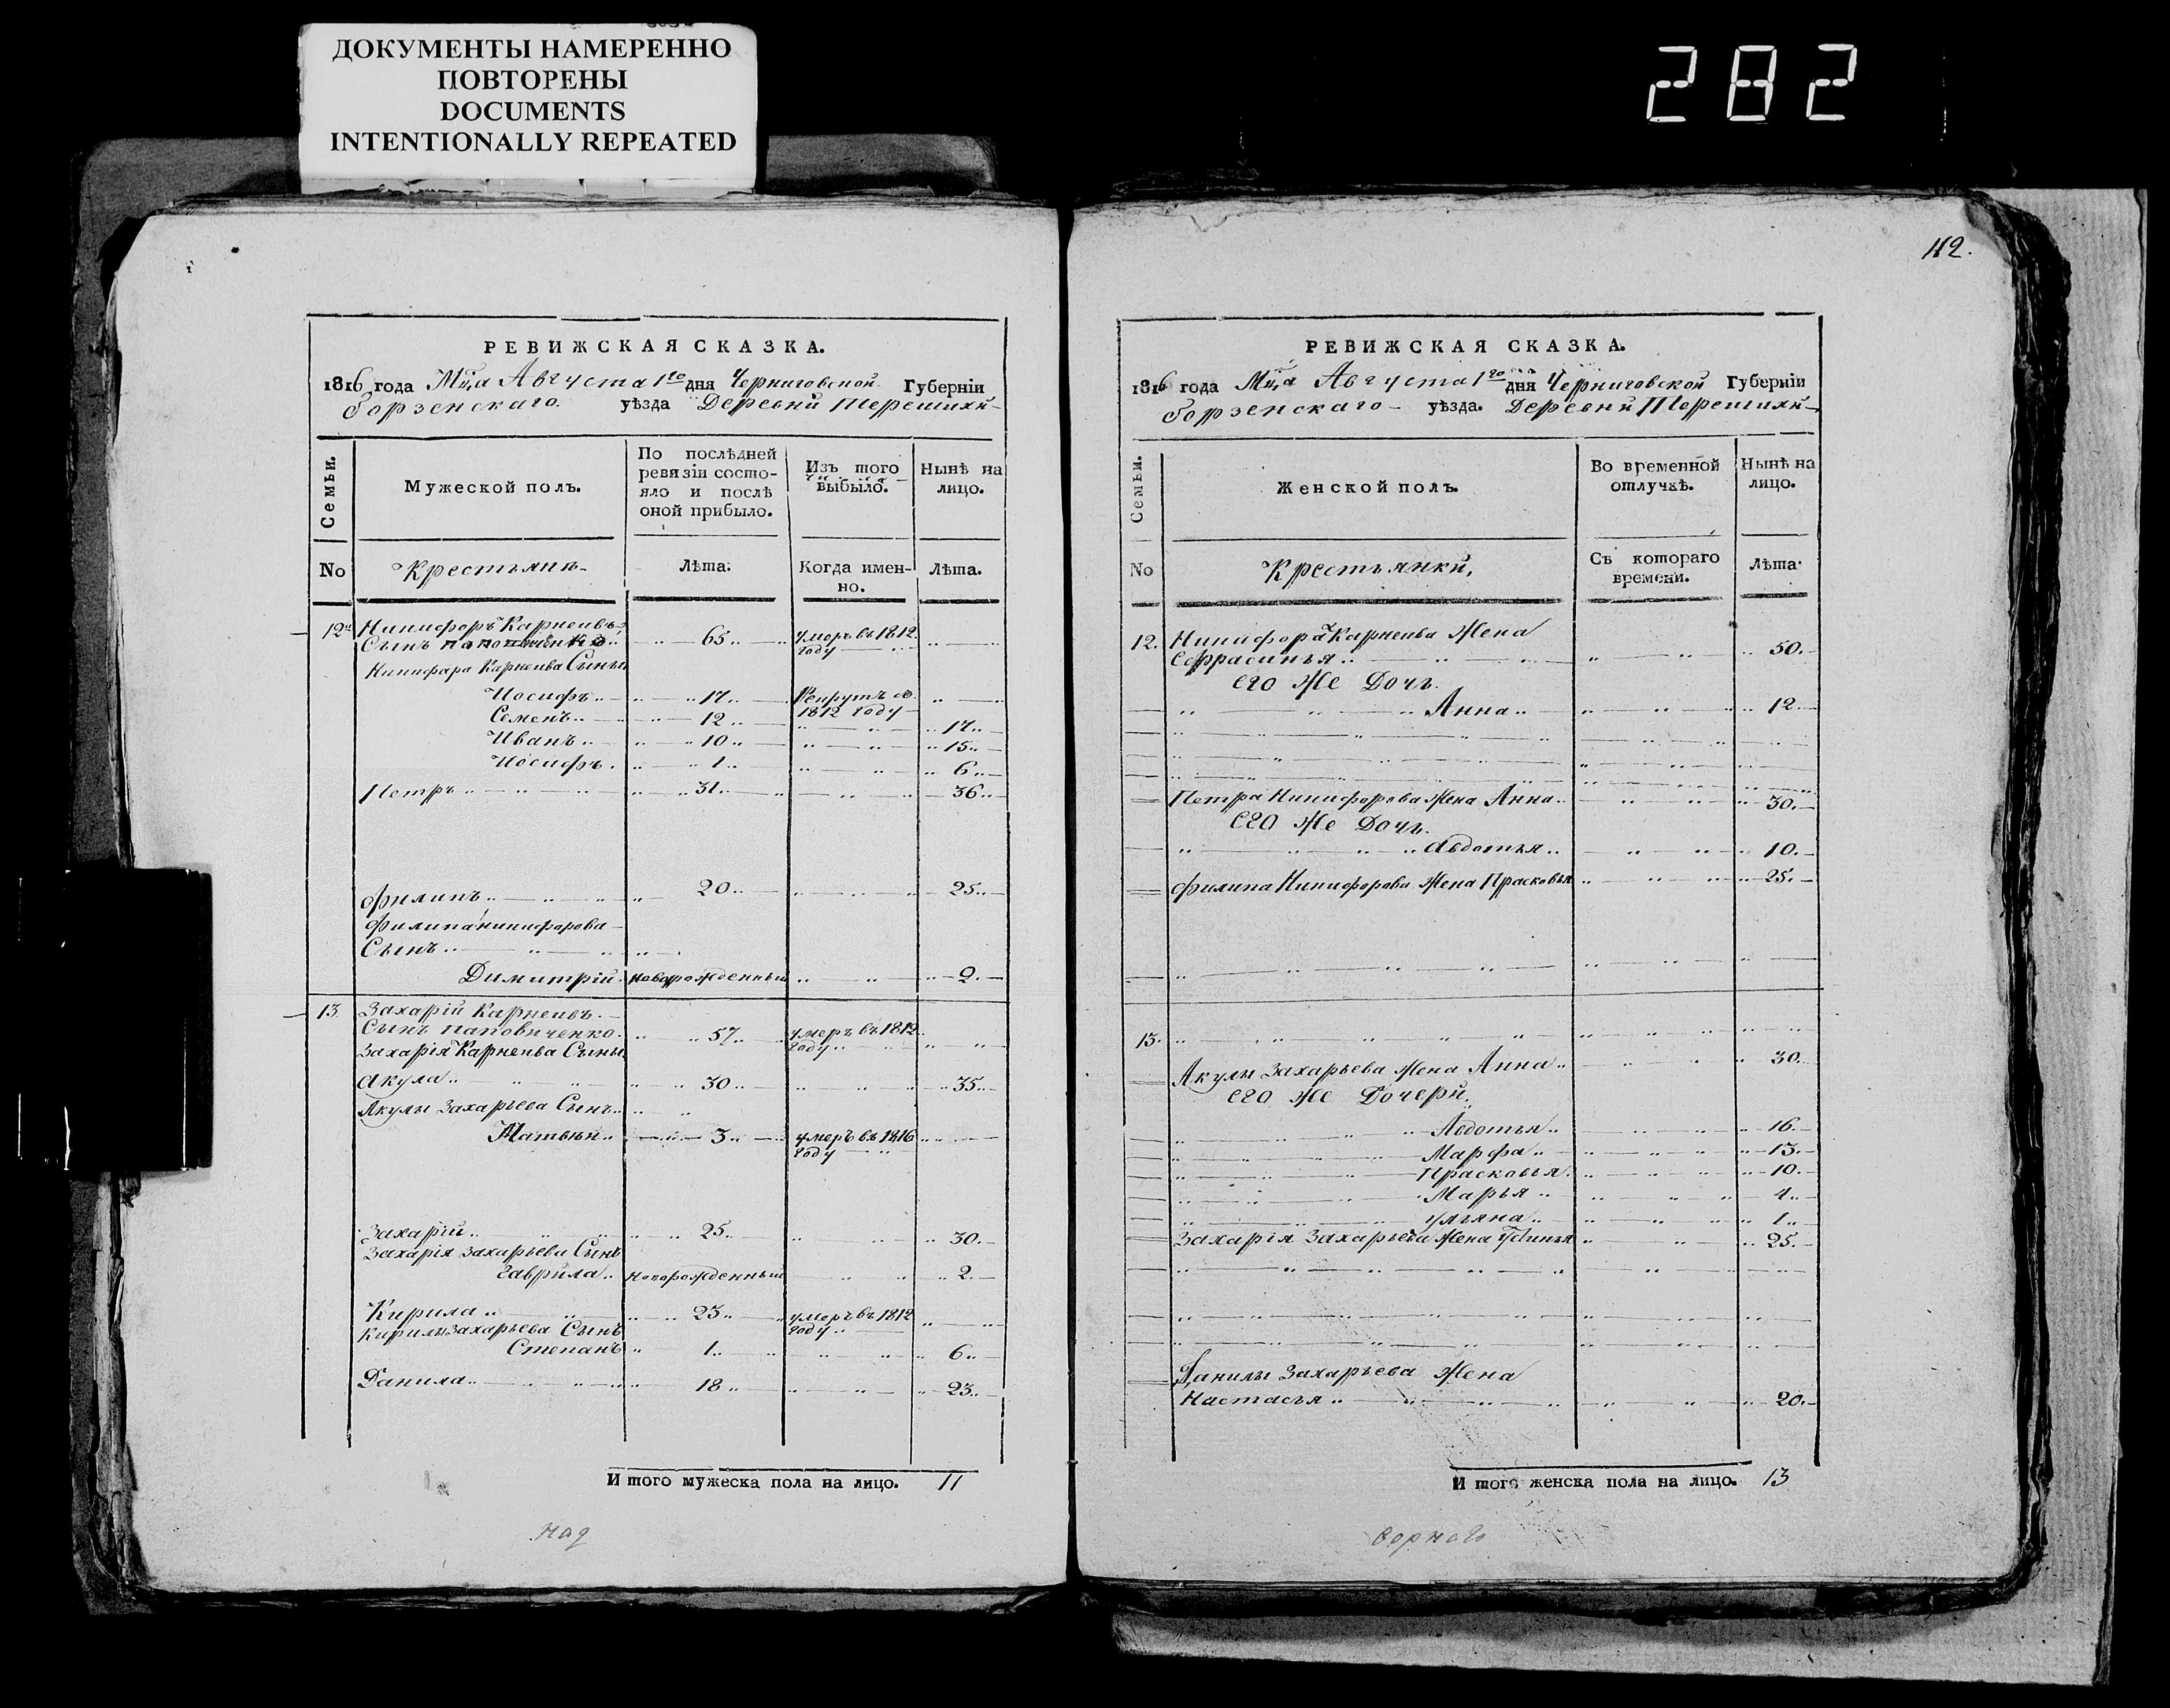 ДОКУМЕНТЫ НАМЕРЕННО
ПОВТОРЕНЫ
DOCUMENTS
INTENTIONALLY REPEATED
282
РЕВИЖСКАЯ СКАЗКА.
1816 года Мца Августа 1го дня Черниговской Губернiи
борзенскаго. уѣзда Деревни Терешихи
Семьи.
Мужеской полъ.
По послѣдней ревизiи состояло и послѣ оной прибыло.
Изъ того выбыло.
Нынѣ на лицо.
No
Крестьянъ
Лѣта.
Когда именно.
Лѣта.
12 Никифоръ Карнеивъ
Сынъ 65 умеръ въ 1812 году
Никифора Карнеива Сыны
Иосифъ 17 Рекрутъ 1812 году
Семенъ 12 17
Иванъ 10 15
Иосифъ 1 6
Петръ 31 36
Филипъ 20 25
Филипа никифорова
Сынъ
Димитрiй новорожденный 2
13 Захарiй Карнеивъ
Сынъ паповиченко 57 умеръ въ 1812 году
Захарiя Карнеива Сыны
Акула 30 35
Акулы Захарьева Сынъ
Матвѣй 3 умеръ въ 1816 году
Захарiй 25 30
Захарiя Захарьева Сынъ
Гаврила новорожденный 2
Кирила 23 умеръ въ 1812 году
Кирилы Захарьева Сынъ
Степанъ 1 6
Данила 18 23
И того мужеска пола на лицо. 11
над
112.
РЕВИЖСКАЯ СКАЗКА.
1816 года Мца Августа 1го дня Черниговской Губернiи
борзенскаго уѣзда. Деревни Терешихи
Семьи.
Женской полъ.
Во временной отлучкѣ.
Нынѣ на лицо.
No
Крестьянки,
Съ котораго времени.
Лѣта.
12. Никифора Карнеива Жена
Ефрасинья 50.
его же Дочь.
Анна 12
Петра Никифорова Жена Анна 30.
его же Дочь.
Авдотья 10.
Филипа Никифорова Жена Прасковья 25.
13.
Акулы Захарьева Жена Анна 30
его же Дочери.
Авдотья 16
Марфа 13
Прасковья 10
Марья 4
Ульяна 1
Захарiя Захарьева Жена 25.
Данилы Захарьева Жена
Настасья 20.
И того женска пола на лицо. 13
ворного